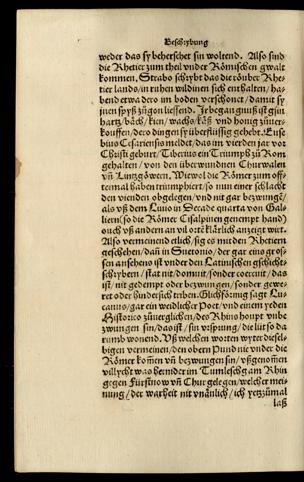 Beschrybung
weder das sy beherschet sin woltend. Also sind
die Rhetier zum theil vnder Römischen gwalt
kommen. Strabo schrybt das die röuber Rhe-
tier lands / in ruhen wildinen sich enthalten / ha-
bend etwa dero im boden verschonet / damit sy
jnen spyß zůgon liessend. Jr begangnuß ist gsin
hartz / bäch / kien / wachs / käß vnd honig zůuer-
kouffen / dero dingen sy überflüssig gehebt. Euse
bius Cesariensis meldet / das im vierden jar vor
Christi geburt / Tiberius ein Triumph zů Rom
gehalten / von den überwundnen Churwalen
vñ Lintzgöwern. Wiewol die Römer zum off-
termal haben triumphiert / so nun einer schlacht
den vienden obgelegen / vnd nit gar bezwungē /
als vß dem Liuio in Decade quarta von Gal-
liern (so die Römer Cisalpinen genempt hand)
ouch vß andern an vil ortē klärlich anzeigt wirt.
Also vermeinend etlich / sig es mit den Rhetiern
geschehen / dañ in Suetonio / der gar eins gros-
sen ansehens ist vnder den Latinschen gschicht-
schrybern / stat nit / domuit / sonder coercuit / das
ist / nit gedempt oder bezwungen / sonder gewe-
ret oder hindersich triben. Glichförmig sagt Lu-
canus / gar ein weidlicher Poet / vnd einem yeden
Historico züuerglichen / des Rhins houpt vnbe
zwungen sin / das ist / sin vrsprung / die lüt so da
rumb wonend. Vß welchen worten wyter diesel-
bigen vermeinen / den obern Pund nie vnder die
Römer komēn vñ bezwungen sin / vßgenomēn
villycht was hernider im Tumleschg am Rhin
gegen Fürstnow vñ Chur gelegen / welcher mei-
nung / der warheit nit vnänlich / ich yetzzůmal
laß